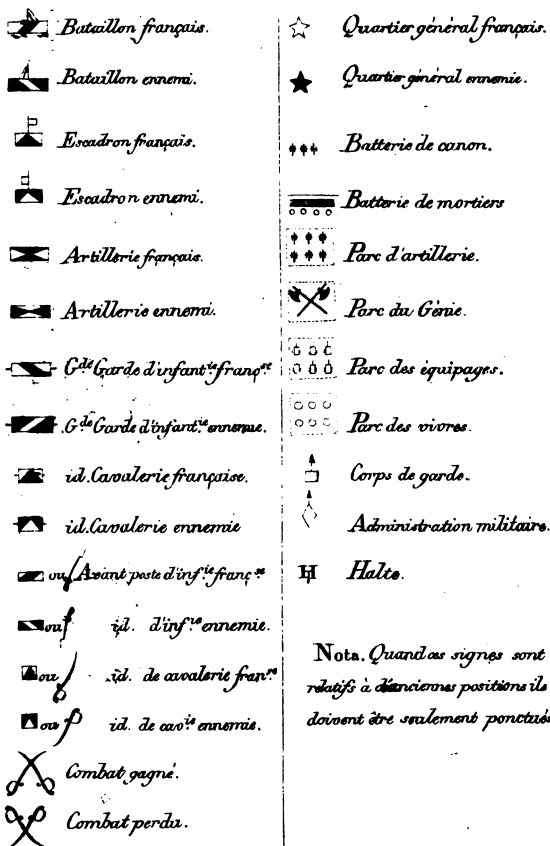 Bataillon français.
Bataillon ennemi.
Escadron français.
Escadron ennemi.
Artillerie français.
Artillerie ennemi.
Gde Garde d'infantie françse
Gde Garde d'infantie ennemie.
id. Cavalerie française.
id. Cavalerie ennemie
ou Avant poste d'infie françse
ou id. d'infie ennemie.
ou id. de cavalerie franse
ou id. de cavie ennemie.
Combat gagné.
Combat perdu.
Quartier général français.
Quartier général ennemie.
Batterie de canon.
Batterie de mortiers
Parc d'artillerie.
Parc du Génie.
Parc des équipages.
Parc des vivres.
Corps de garde.
Administration militaire.
H Halte.
Nota. Quand ces signes sont
relatifs à d'anciennes positions ils
doivent être seulement ponctués